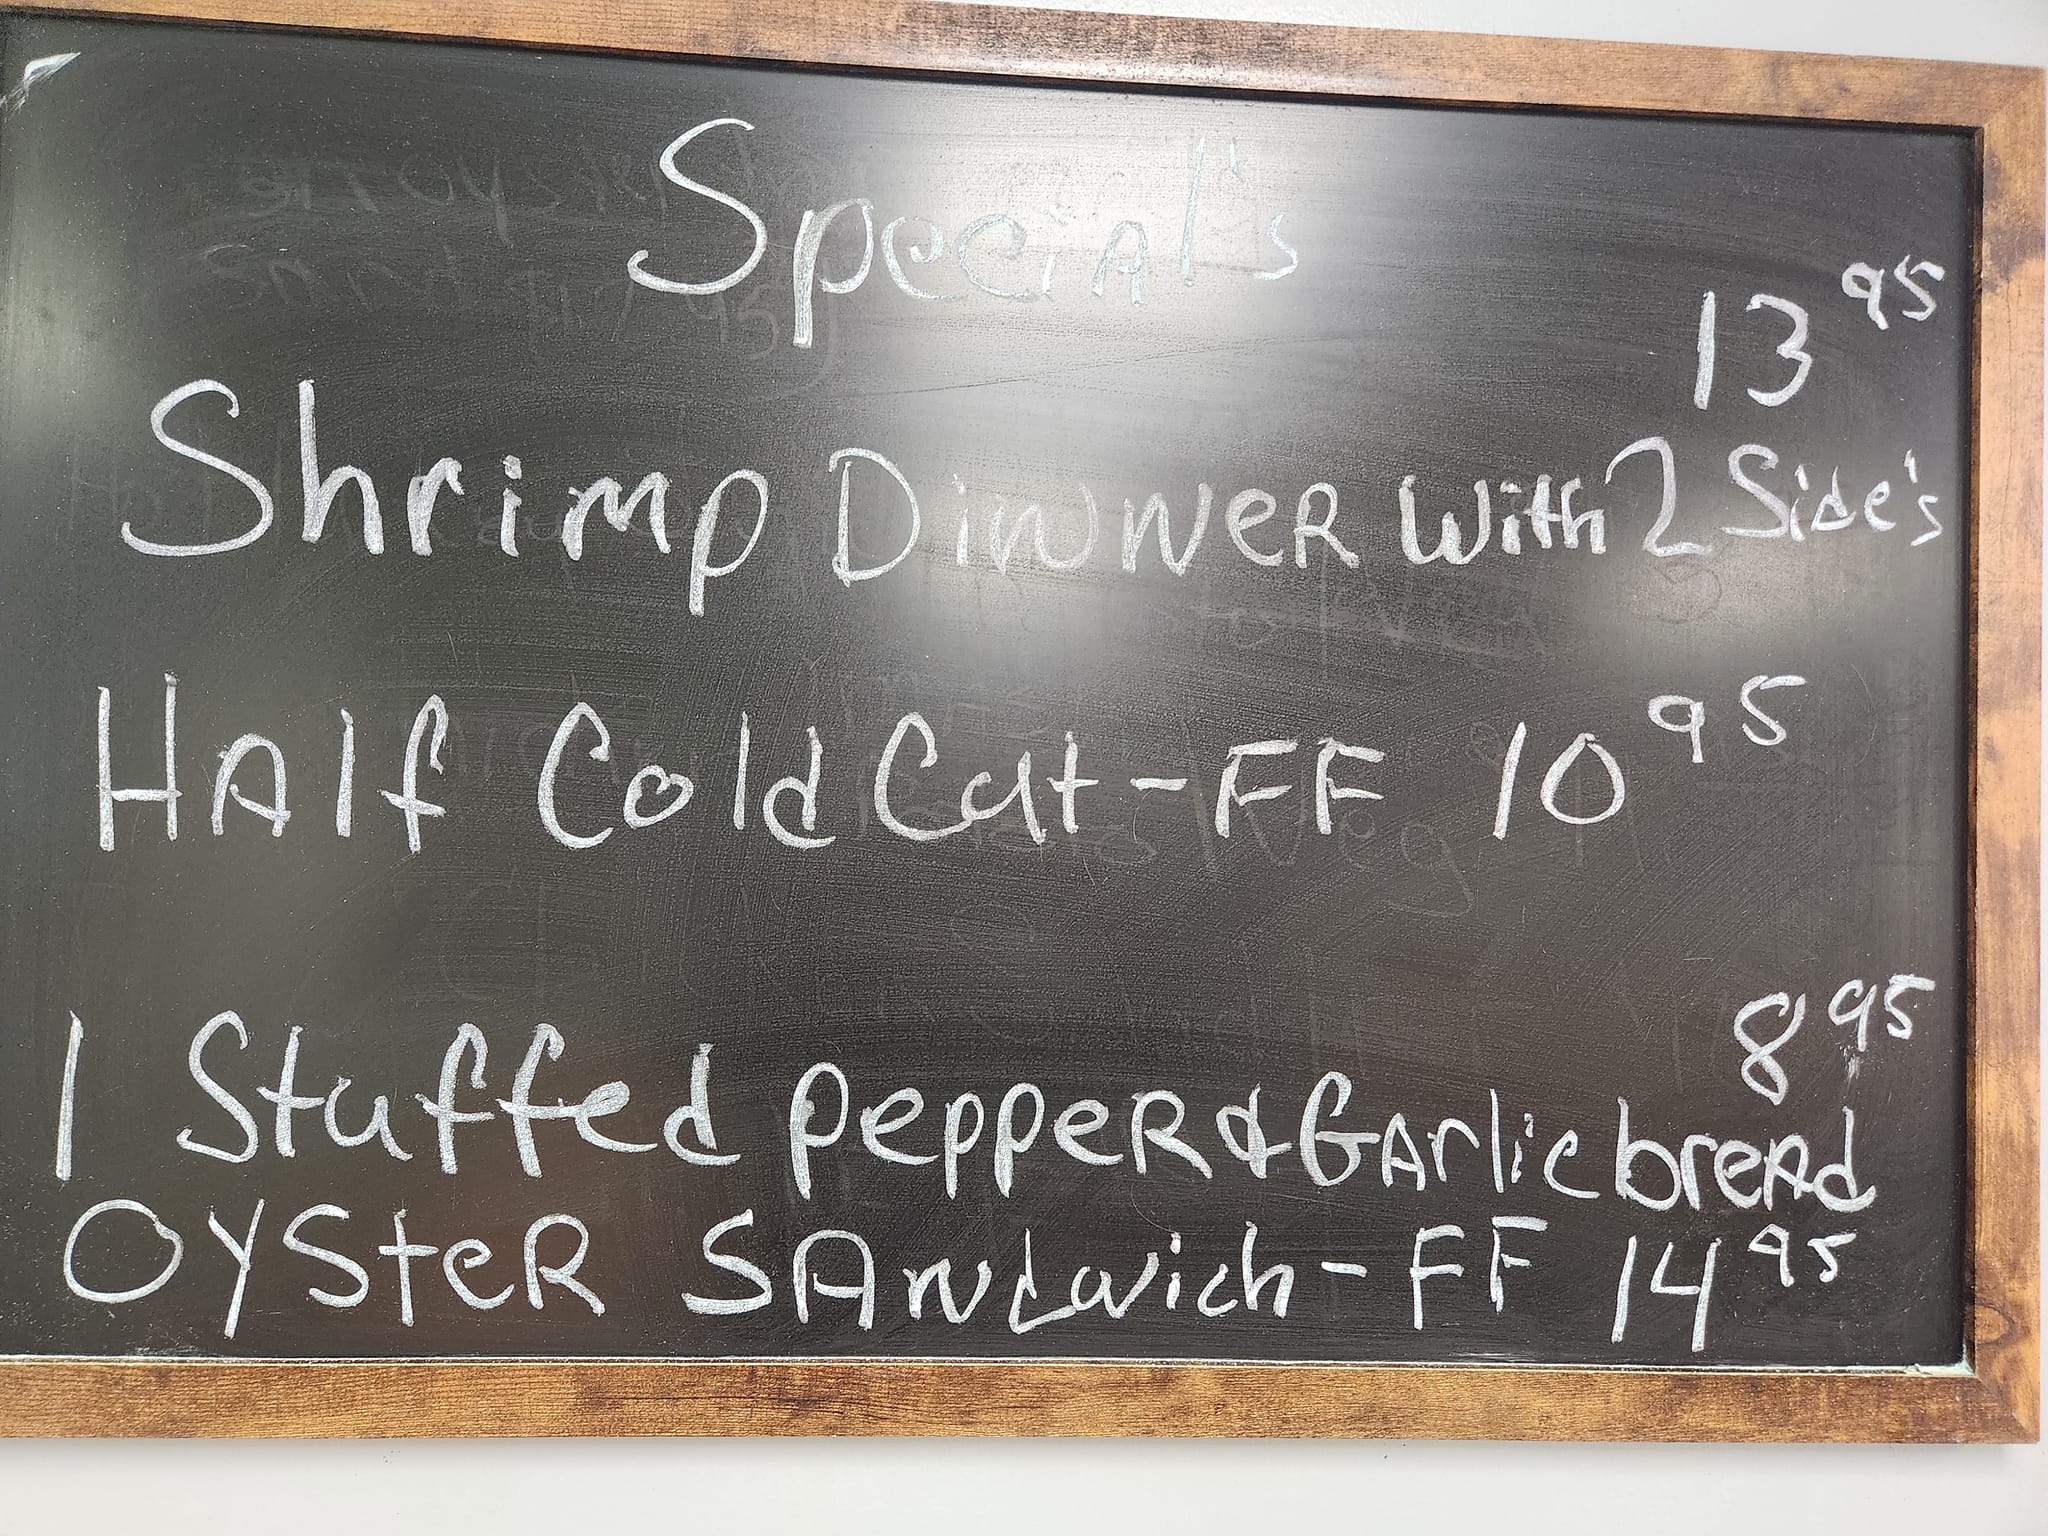 Special's
13 95
Shrimp Dinner with 2 Side's
Half Cold Cut - FF 10 95
8 95
1 Stuffed pepper & Garlic bread
Oyster Sandwich - FF 14 95